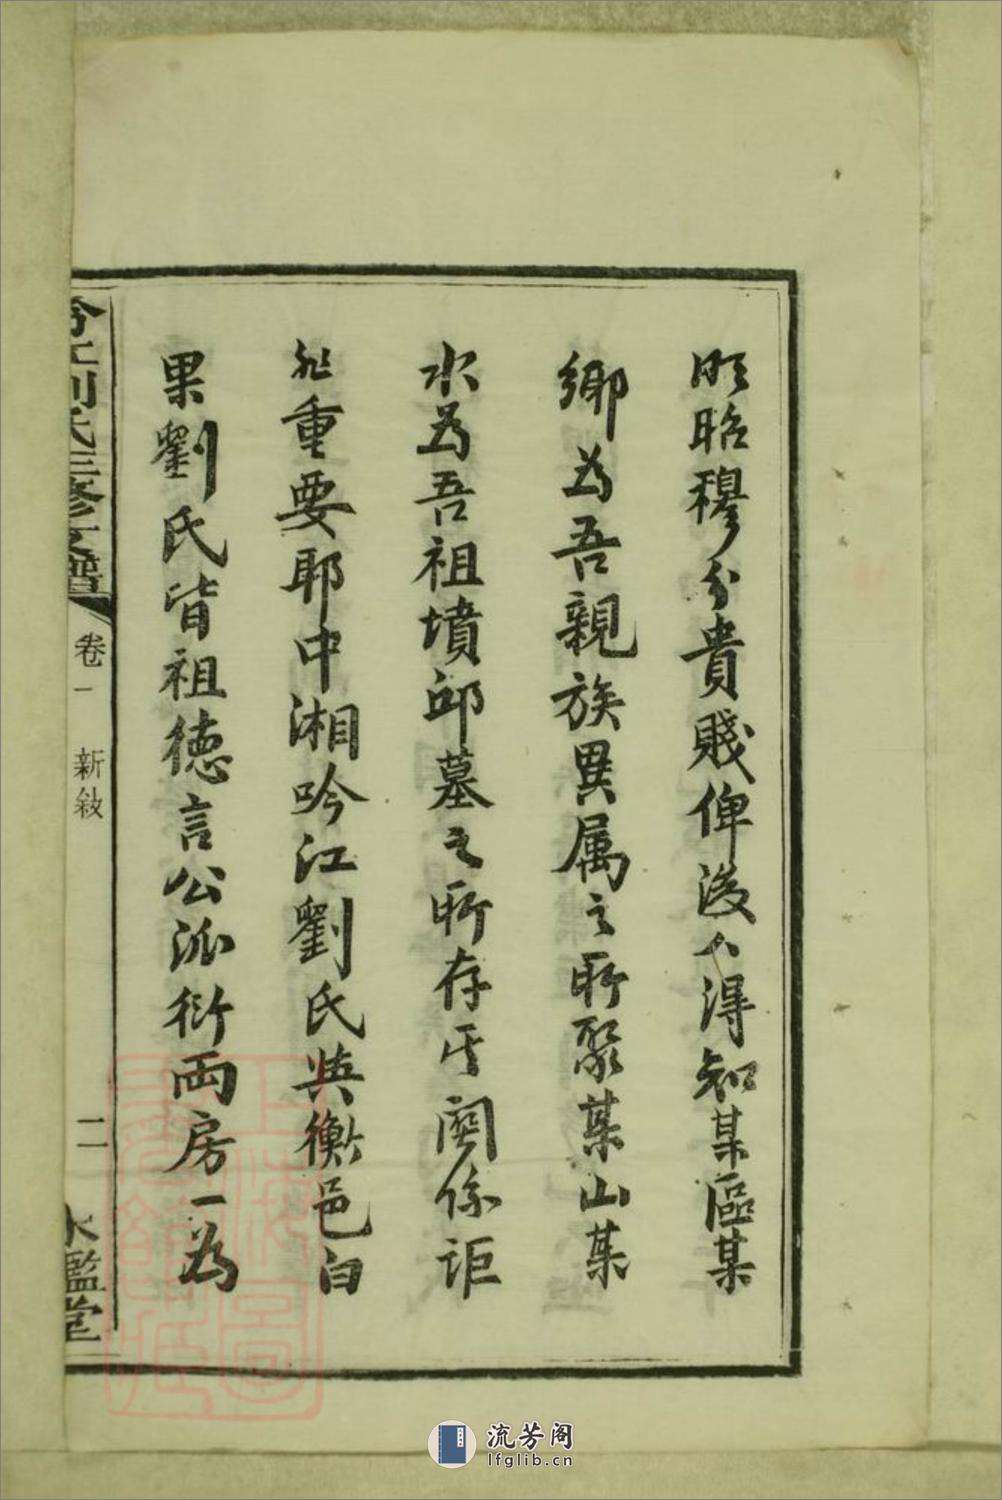 明昭穆分貴賤俾後人得知某區某
鄉為吾親族異属之所聚某山某
水為吾祖墳邱墓之所存其関係詎
非重要耶中湘吟江劉氏與衡邑白
果劉氏皆祖德言公派衍兩房一為
吟江劉氏三修支譜
卷一
新敍
二
水鑑堂
流芳阁
lfglib.cn